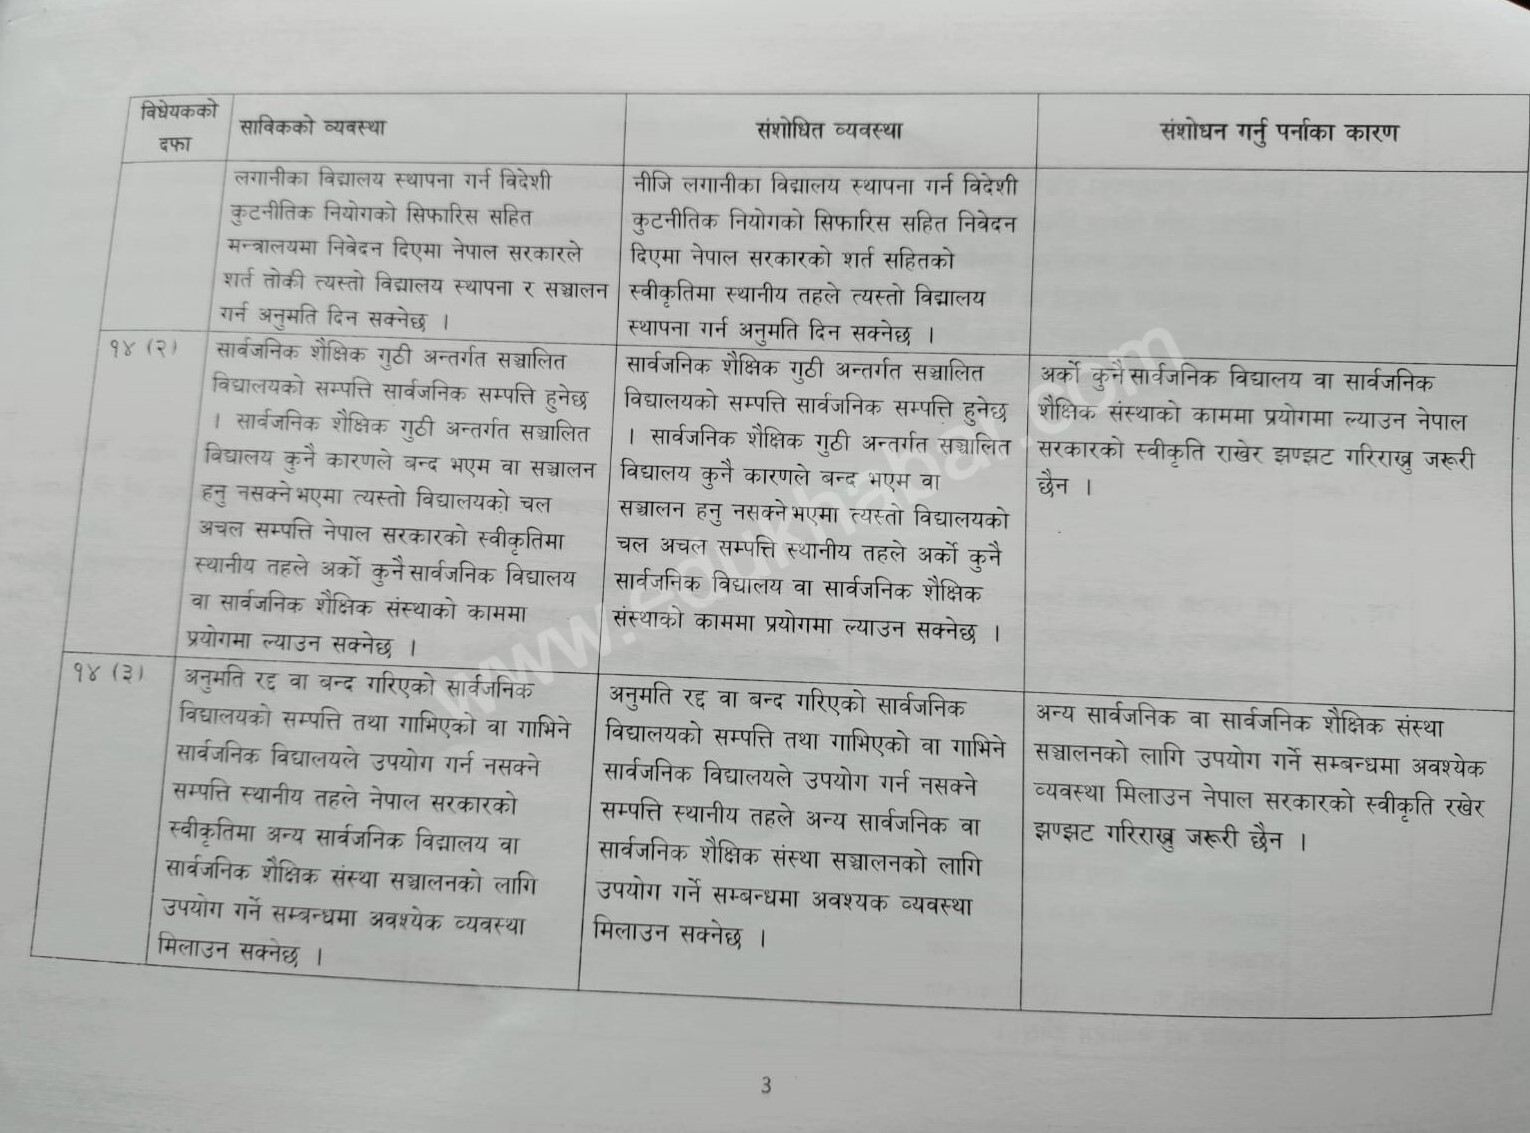 विधेयकको
दफा
साविकको व्यवस्था
संशोधित व्यवस्था
संशोधन गर्नु पर्नाका कारण
लगानीका विद्यालय स्थापना गर्न विदेशी
कुटनीतिक नियोगको सिफारिस सहित
मन्त्रालयमा निवेदन दिएमा नेपाल सरकारले
शर्त तोकी त्यस्तो विद्यालय स्थापना र सञ्चालन
गर्न अनुमति दिन सक्नेछ ।
नीजि लगानीका विद्यालय स्थापना गर्न विदेशी
कुटनीतिक नियोगको सिफारिस सहित निवेदन
दिएमा नेपाल सरकारको शर्त सहितको
स्वीकृतिमा स्थानीय तहले त्यस्तो विद्यालय
स्थापना गर्न अनुमति दिन सक्नेछ ।
१४ (२)
सार्वजनिक शैक्षिक गुठी अन्तर्गत सञ्चालित
विद्यालयको सम्पत्ति सार्वजनिक सम्पत्ति हुनेछ
। सार्वजनिक शैक्षिक गुठी अन्तर्गत सञ्चालित
विद्यालय कुनै कारणले बन्द भएम वा सञ्चालन
हनु नसक्ने भएमा त्यस्तो विद्यालयको चल
अचल सम्पत्ति नेपाल सरकारको स्वीकृतिमा
स्थानीय तहले अर्को कुनै सार्वजनिक विद्यालय
वा सार्वजनिक शैक्षिक संस्थाको काममा
प्रयोगमा ल्याउन सक्नेछ ।
सार्वजनिक शैक्षिक गुठी अन्तर्गत सञ्चालित
विद्यालयको सम्पत्ति सार्वजनिक सम्पत्ति हुनेछ
। सार्वजनिक शैक्षिक गुठी अन्तर्गत सञ्चालित
विद्यालय कुनै कारणले बन्द भएम वा
सञ्चालन हनु नसक्ने भएमा त्यस्तो विद्यालयको
चल अचल सम्पत्ति स्थानीय तहले अर्को कुनै
सार्वजनिक विद्यालय वा सार्वजनिक शैक्षिक
संस्थाको काममा प्रयोगमा ल्याउन सक्नेछ ।
अर्को कुनै सार्वजनिक विद्यालय वा सार्वजनिक
शैक्षिक संस्थाको काममा प्रयोगमा ल्याउन नेपाल
सरकारको स्वीकृति राखेर झण्झट गरिराख्नु जरूरी
छैन ।
१४ (३)
अनुमति रद्द वा बन्द गरिएको सार्वजनिक
विद्यालयको सम्पत्ति तथा गाभिएको वा गाभिने
सार्वजनिक विद्यालयले उपयोग गर्न नसक्ने
सम्पत्ति स्थानीय तहले नेपाल सरकारको
स्वीकृतिमा अन्य सार्वजनिक विद्यालय वा
सार्वजनिक शैक्षिक संस्था सञ्चालनको लागि
उपयोग गर्ने सम्बन्धमा अवश्येक व्यवस्था
मिलाउन सक्नेछ ।
अनुमति रद्द वा बन्द गरिएको सार्वजनिक
विद्यालयको सम्पत्ति तथा गाभिएको वा गाभिने
सार्वजनिक विद्यालयले उपयोग गर्न नसक्ने
सम्पत्ति स्थानीय तहले अन्य सार्वजनिक वा
सार्वजनिक शैक्षिक संस्था सञ्चालनको लागि
उपयोग गर्ने सम्बन्धमा अवश्यक व्यवस्था
मिलाउन सक्नेछ ।
अन्य सार्वजनिक वा सार्वजनिक शैक्षिक संस्था
सञ्चालनको लागि उपयोग गर्ने सम्बन्धमा अवश्येक
व्यवस्था मिलाउन नेपाल सरकारको स्वीकृति रखेर
झण्झट गरिराख्नु जरूरी छैन ।
www.edukhabar.com
3